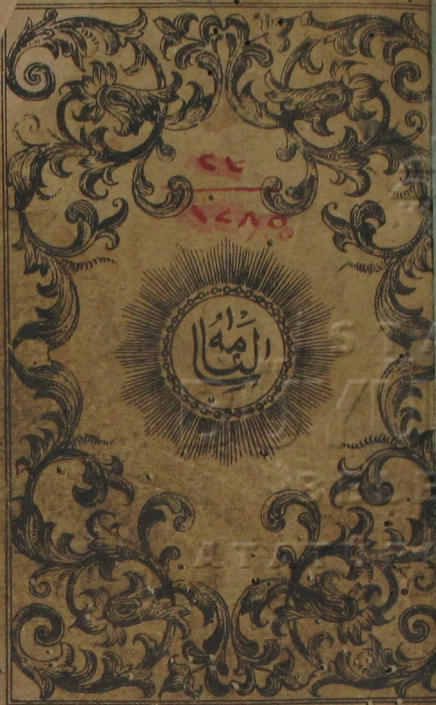 ٢٤
١٢٨٥
سالنامه